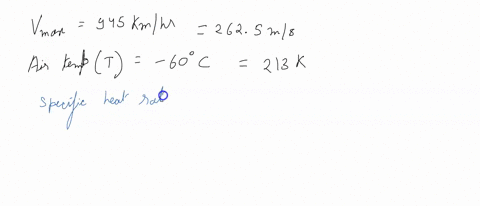 Vmax = 945 Km/hr = 262.5 m/s
Air temp (T) = -60°C = 213 K
Specific heat rat